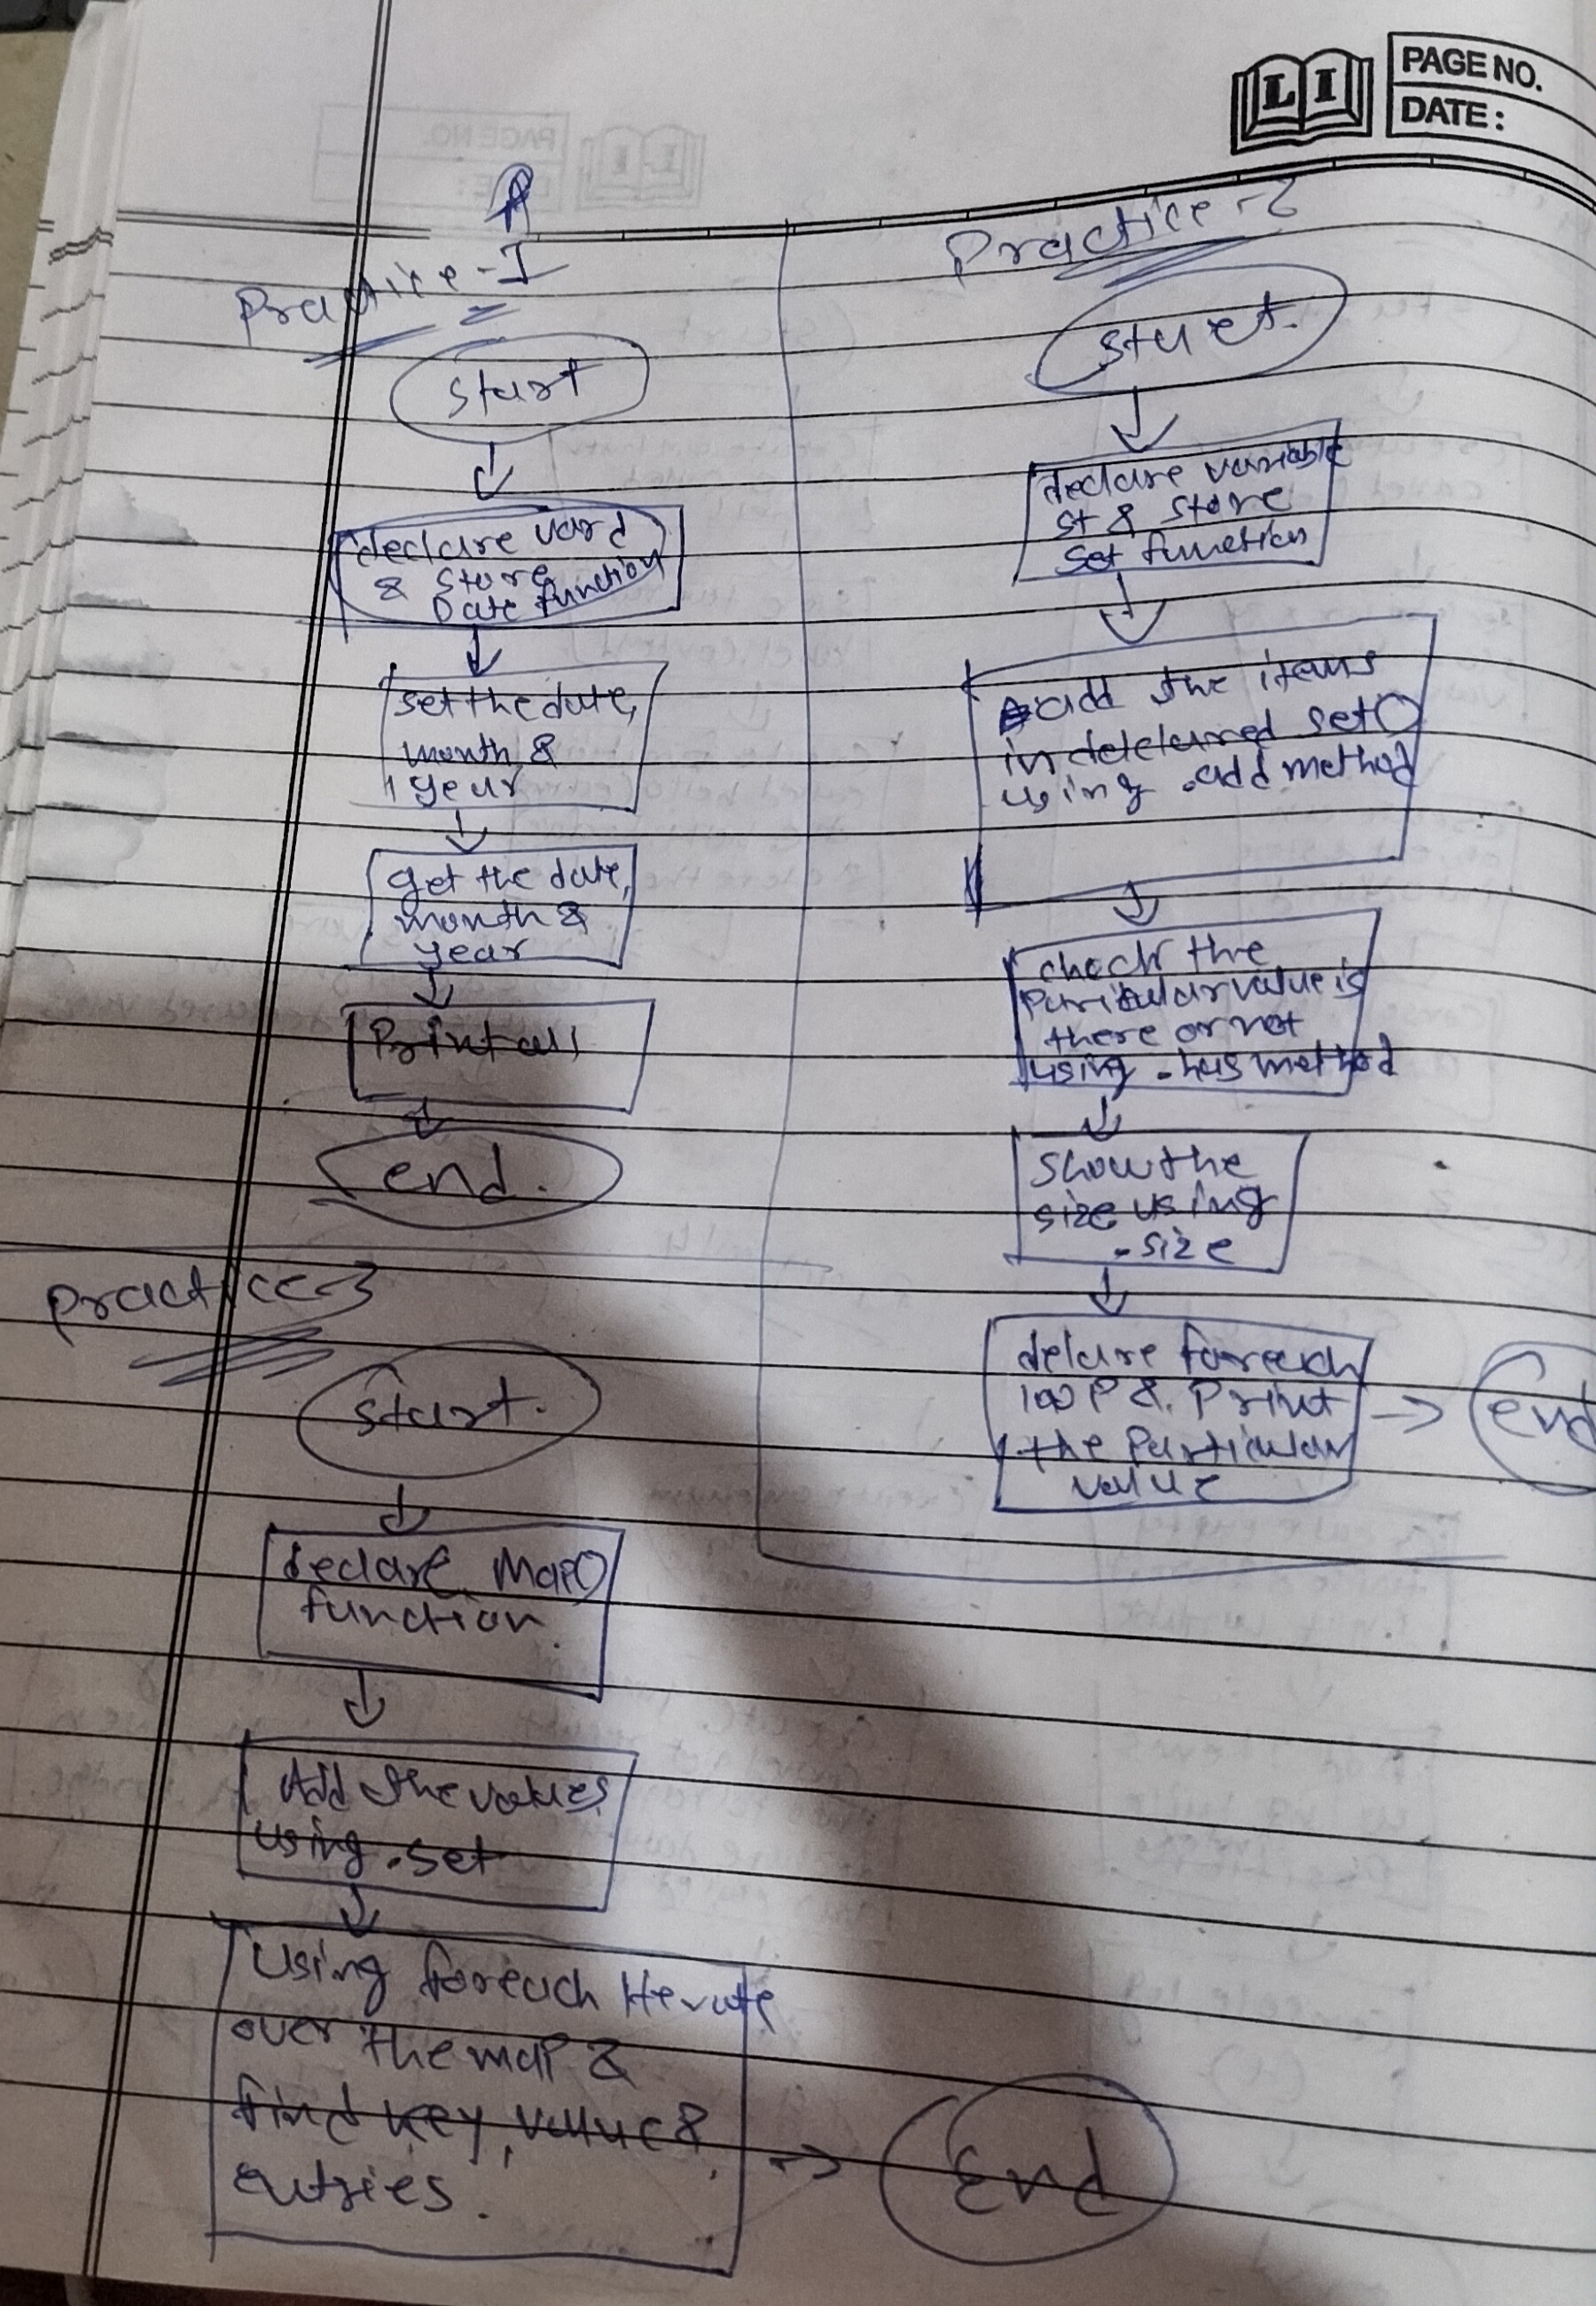 LI
PAGE NO.
DATE:
Practice-1
Start
declare var d
& store
Date function
set the date,
month &
year
get the date,
month &
year
Print all
end.
Practice-2
Start.
declare variable
st & store
set function
add the items
in delclerred set()
using .add method
check the
Particular value is
there or not
using .has method
Show the
size using
.size
delare foreach
loop & Print
the Particular
value
end
Practice-3
Start.
declare Map()
function.
Add the values
using .set
Using foreach Iterate
over the map &
find key, value &
entries.
End